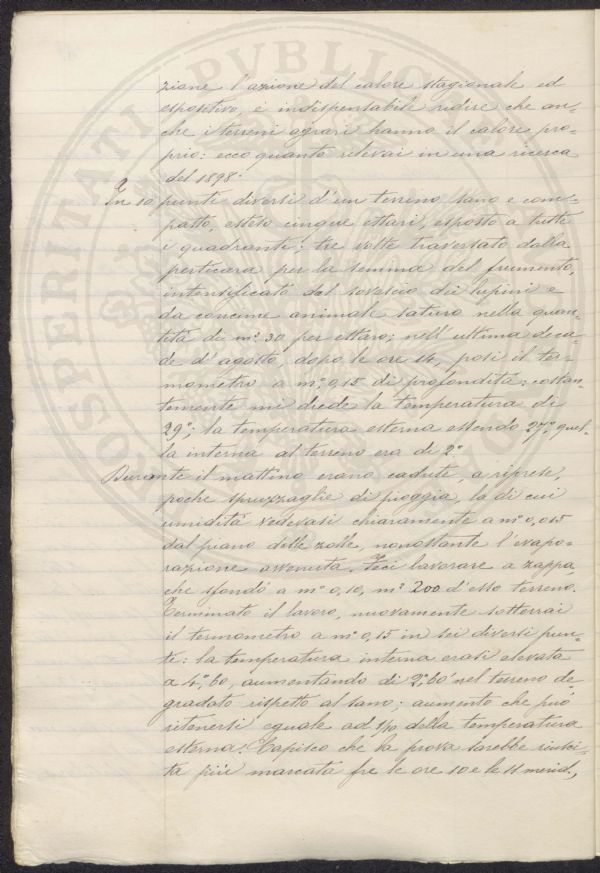 zione l'azione del calore stagionale ed
espositivo, è indispensabile ridire che an-
che i terreni agrari hanno il calore pro-
prio: ecco quanto rilevai in una ricerca
del 1898.
In 10 punti diversi d'un terreno sano e com-
patto, esteso cinque ettari, esposto a tutti
i quadranti; tre volte traversato dalla
perticara per la semina del frumento,
intensificato dal sovescio dei lupini e
da concime animale saturo nella quan-
tità di m.³ 30 per ettaro; nell'ultima deca-
de d'agosto, dopo le ore 14, posi il ter-
mometro a m.º 0,15 di profondità: costan-
temente mi diede la temperatura di
29º; la temperatura esterna essendo 27º, quel-
la interna al terreno era di 2º.
Durante il mattino erano cadute, a riprese,
poche spruzzaglie di pioggia, la di cui
umidità vedevasi chiaramente a m.º 0,015
dal piano delle zolle, nonostante l'evapo-
razione avvenuta. Feci lavorare a zappa
che sfondò a m.º 0,10, m.² 200 d'esso terreno.
Terminato il lavoro, nuovamente sotterrai
il termometro a m.º 0,15 in sei diversi pun-
ti: la temperatura interna erasi elevata
a 4º,60, aumentando di 2º,60 nel terreno de-
gradato rispetto al sano; aumento che può
ritenersi eguale ad 1/10 della temperatura
esterna. Capisco che la prova sarebbe riusci-
ta più marcata fra le ore 10 e le 11 merid.,
PROSPERITATI PVBLICAE